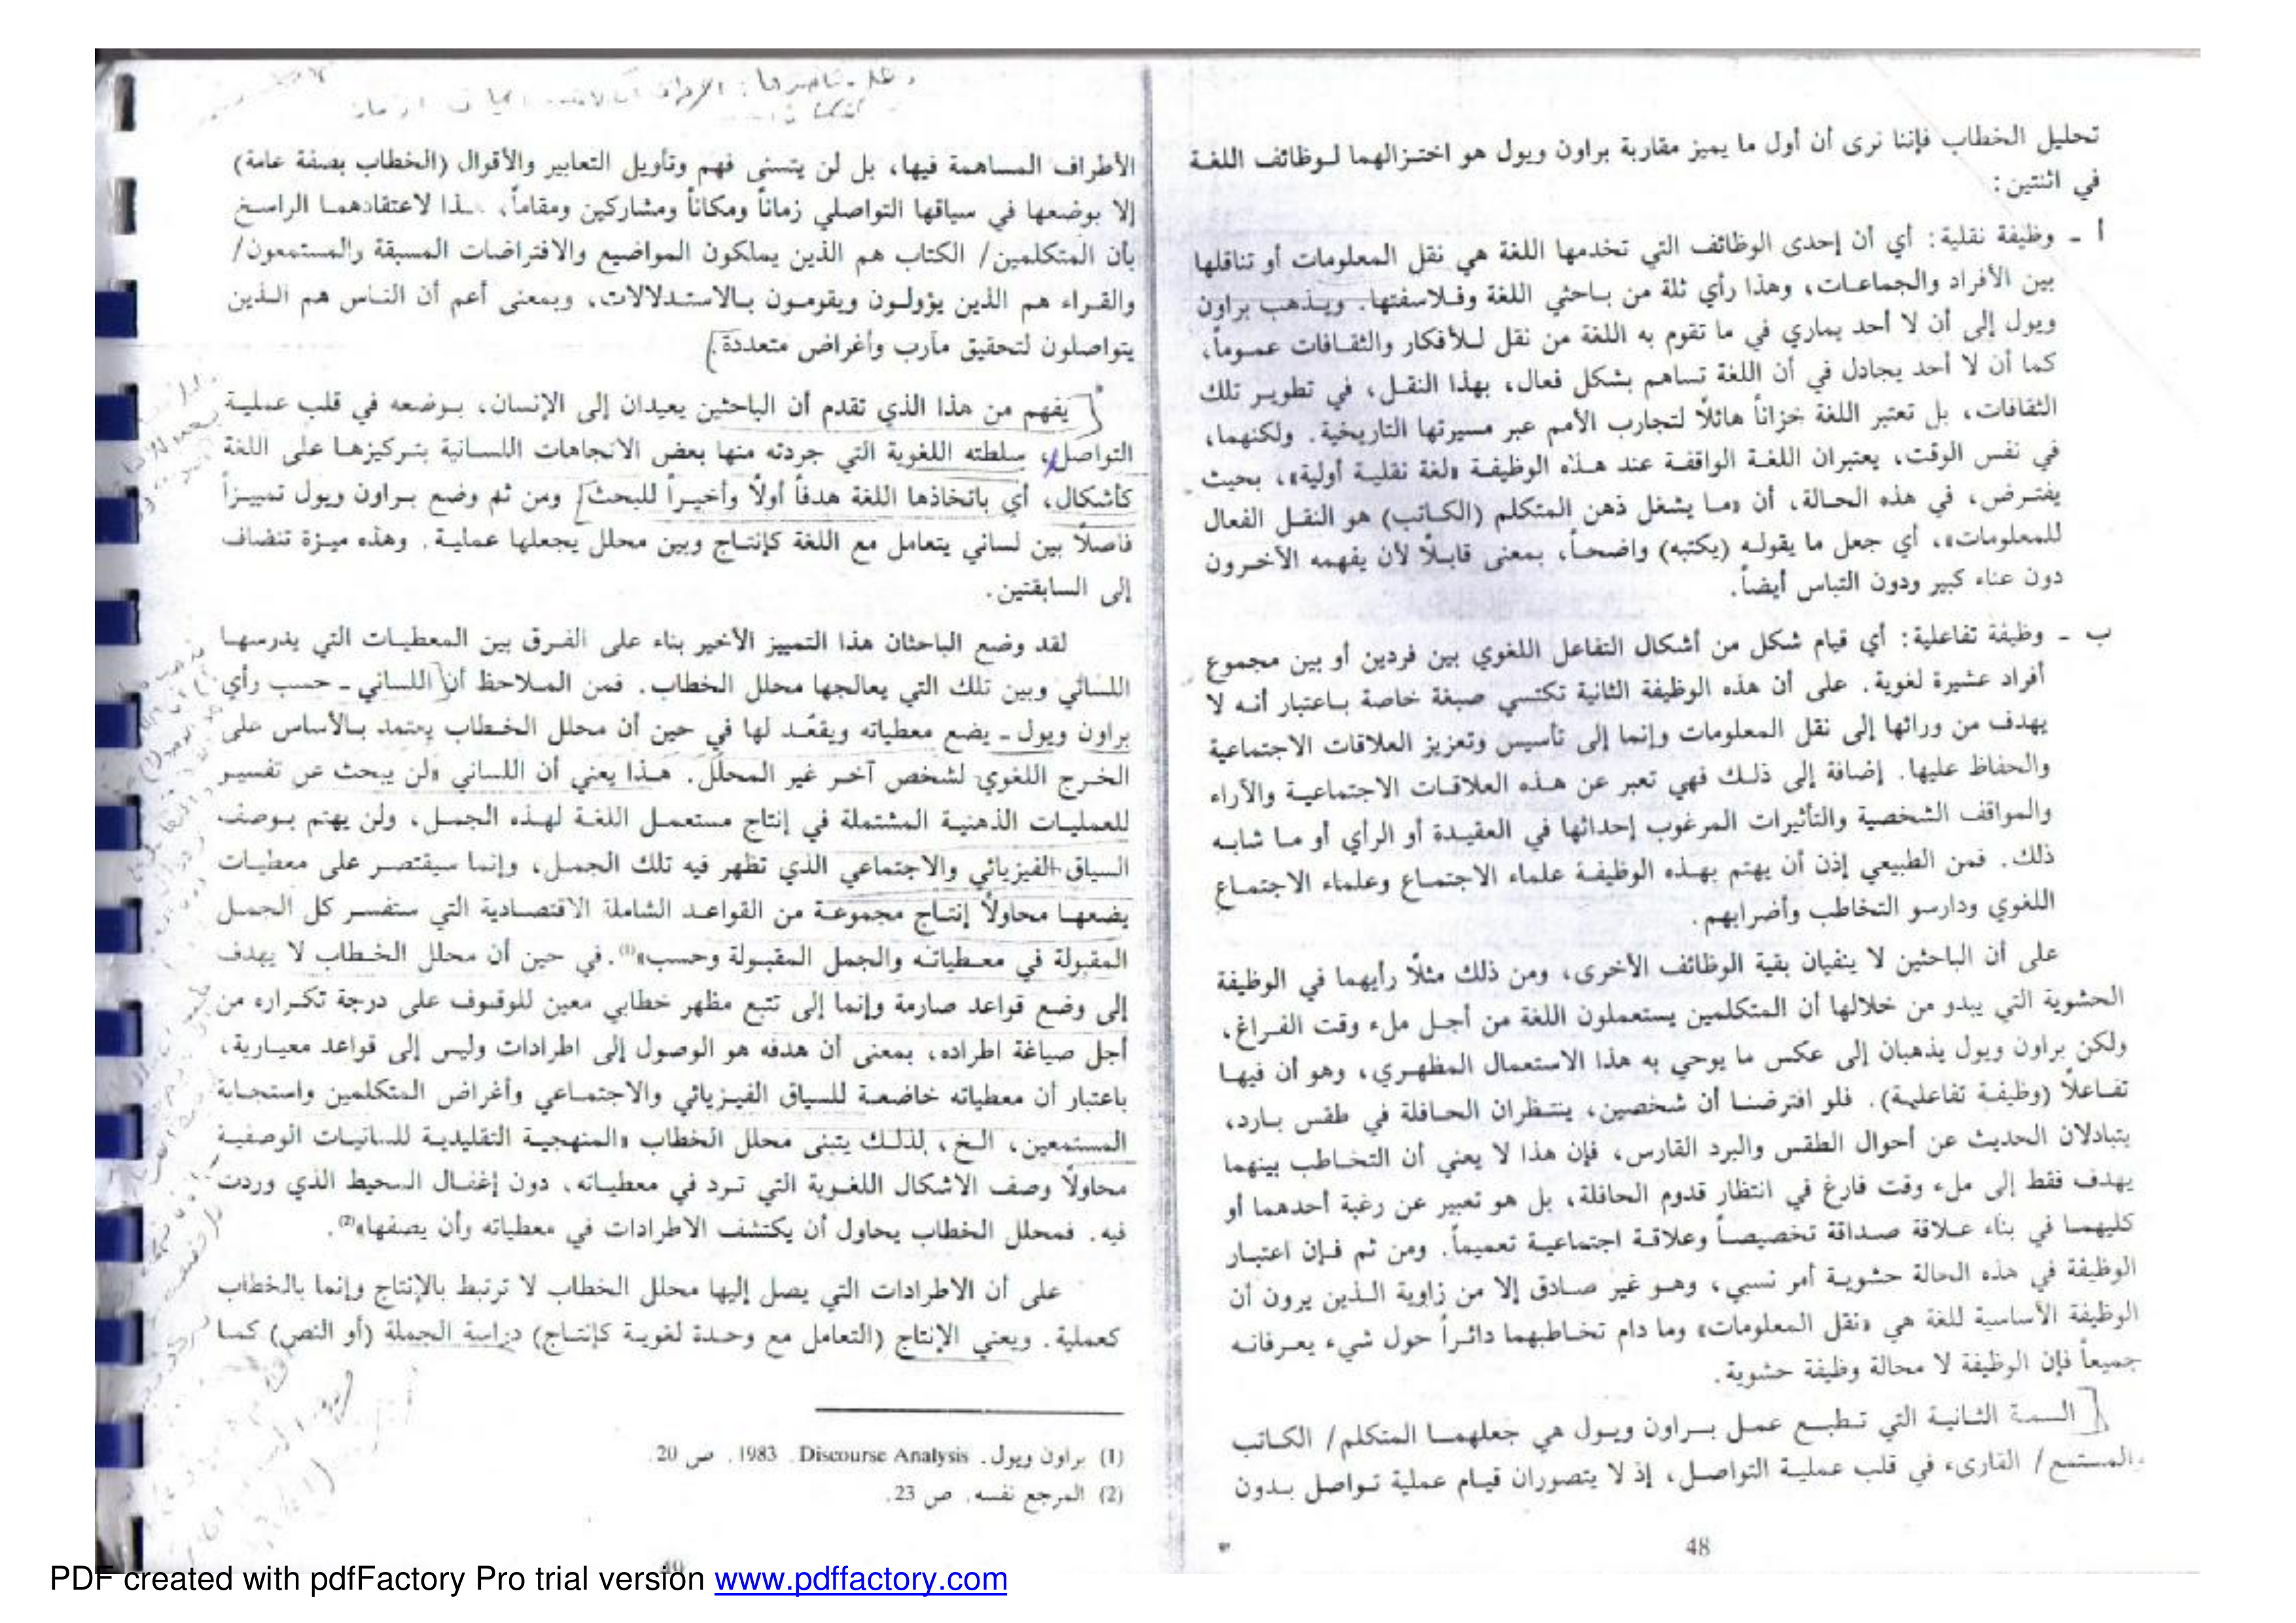 تحليل الخطاب فإننا نرى أن أول ما يميز مقاربة براون ويول هو اختزالهما لوظائف اللغة
في اثنتين:
أ ـ وظيفة نقلية: أي أن إحدى الوظائف التي تخدمها اللغة هي نقل المعلومات أو تناقلها
بين الأفراد والجماعات، وهذا رأي ثلة من باحثي اللغة وفلاسفتها. ويذهب براون
ويول إلى أن لا أحد يماري في ما تقوم به اللغة من نقل للأفكار والثقافات عموماً،
كما أن لا أحد يجادل في أن اللغة تساهم بشكل فعال، بهذا النقل، في تطوير تلك
الثقافات، بل تعتبر اللغة خزاناً هائلاً لتجارب الأمم عبر مسيرتها التاريخية. ولكنهما،
في نفس الوقت، يعتبران اللغة الواقفة عند هذه الوظيفة «لغة نقلية أولية»، بحيث
يفترض، في هذه الحالة، أن «ما يشغل ذهن المتكلم (الكاتب) هو النقل الفعال
للمعلومات»، أي جعل ما يقوله (يكتبه) واضحاً، بمعنى قابلاً لأن يفهمه الآخرون
دون عناء كبير ودون التباس أيضاً.
ب ـ وظيفة تفاعلية: أي قيام شكل من أشكال التفاعل اللغوي بين فردين أو بين مجموع
أفراد عشيرة لغوية. على أن هذه الوظيفة الثانية تكتسي صبغة خاصة باعتبار أنه لا
يهدف من ورائها إلى نقل المعلومات وإنما إلى تأسيس وتعزيز العلاقات الاجتماعية
والحفاظ عليها. إضافة إلى ذلك فهي تعبر عن هذه العلاقات الاجتماعية والآراء
والمواقف الشخصية والتأثيرات المرغوب إحداثها في العقيدة أو الرأي أو ما شابه
ذلك. فمن الطبيعي إذن أن يهتم بهذه الوظيفة علماء الاجتماع وعلماء الاجتماع
اللغوي ودارسو التخاطب وأضرابهم.
على أن الباحثين لا ينفيان بقية الوظائف الأخرى، ومن ذلك مثلاً رأيهما في الوظيفة
الحشوية التي يبدو من خلالها أن المتكلمين يستعملون اللغة من أجل ملء وقت الفراغ،
ولكن براون ويول يذهبان إلى عكس ما يوحي به هذا الاستعمال المظهري، وهو أن فيها
تفاعلاً (وظيفة تفاعلية). فلو افترضنا أن شخصين، ينتظران الحافلة في طقس بارد،
يتبادلان الحديث عن أحوال الطقس والبرد القارس، فإن هذا لا يعني أن التخاطب بينهما
يهدف فقط إلى ملء وقت فارغ في انتظار قدوم الحافلة، بل هو تعبير عن رغبة أحدهما أو
كليهما في بناء علاقة صداقة تخصيصاً وعلاقة اجتماعية تعميماً. ومن ثم فإن اعتبار
الوظيفة في هذه الحالة حشوية أمر نسبي، وهو غير صادق إلا من زاوية الذين يرون أن
الوظيفة الأساسية للغة هي «نقل المعلومات» وما دام تخاطبهما دائراً حول شيء يعرفانه
جميعاً فإن الوظيفة لا محالة وظيفة حشوية.
السمة الثانية التي تطبع عمل براون ويول هي جعلهما المتكلم/ الكاتب
والمستمع/ القارىء في قلب عملية التواصل، إذ لا يتصوران قيام عملية تواصل بدون
48
الأطراف المساهمة فيها، بل لن يتسنى فهم وتأويل التعابير والأقوال (الخطاب بصفة عامة)
إلا بوضعها في سياقها التواصلي زماناً ومكاناً ومشاركين ومقاماً، هذا لاعتقادهما الراسخ
بأن المتكلمين/ الكتاب هم الذين يملكون المواضيع والافتراضات المسبقة والمستمعون/
والقراء هم الذين يؤولون ويقومون بالاستدلالات، وبمعنى أعم أن الناس هم الذين
يتواصلون لتحقيق مآرب وأغراض متعددة.
يفهم من هذا الذي تقدم أن الباحثين يعيدان إلى الإنسان، بوضعه في قلب عملية
التواصل، سلطته اللغوية التي جردته منها بعض الاتجاهات اللسانية بتركيزها على اللغة
كأشكال، أي باتخاذها اللغة هدفاً أولاً وأخيراً للبحث. ومن ثم وضع براون ويول تمييزاً
فاصلاً بين لساني يتعامل مع اللغة كإنتاج وبين محلل يجعلها عملية. وهذه ميزة تنضاف
إلى السابقتين.
لقد وضع الباحثان هذا التمييز الأخير بناء على الفرق بين المعطيات التي يدرسها
اللساني وبين تلك التي يعالجها محلل الخطاب. فمن الملاحظ أن اللساني ـ حسب رأي
براون ويول ـ يضع معطياته ويقعّد لها في حين أن محلل الخطاب يعتمد بالأساس على
الخرج اللغوي لشخص آخر غير المحلل. هذا يعني أن اللساني «لن يبحث عن تفسير
للعمليات الذهنية المشتملة في إنتاج مستعمل اللغة لهذه الجمل، ولن يهتم بوصف
السياق الفيزيائي والاجتماعي الذي تظهر فيه تلك الجمل، وإنما سيقتصر على معطيات
يضعها محاولاً إنتاج مجموعة من القواعد الشاملة الاقتصادية التي ستفسر كل الجمل
المقبولة في معطياته والجمل المقبولة وحسب»(1). في حين أن محلل الخطاب لا يهدف
إلى وضع قواعد صارمة وإنما إلى تتبع مظهر خطابي معين للوقوف على درجة تكراره من
أجل صياغة اطراده، بمعنى أن هدفه هو الوصول إلى اطرادات وليس إلى قواعد معيارية،
باعتبار أن معطياته خاضعة للسياق الفيزيائي والاجتماعي وأغراض المتكلمين واستجابة
المستمعين، الخ، لذلك يتبنى محلل الخطاب «المنهجية التقليدية للسانيات الوصفية
محاولاً وصف الاشكال اللغوية التي ترد في معطياته، دون إغفال المحيط الذي وردت
فيه. فمحلل الخطاب يحاول أن يكتشف الاطرادات في معطياته وأن يصفها»(2).
على أن الاطرادات التي يصل إليها محلل الخطاب لا ترتبط بالإنتاج وإنما بالخطاب
كعملية. ويعني الإنتاج (التعامل مع وحدة لغوية كإنتاج) دراسة الجملة (أو النص) كما
(1) براون ويول. Discourse Analysis . 1983 . ص 20.
(2) المرجع نفسه. ص 23.
49
PDF created with pdfFactory Pro trial version www.pdffactory.com